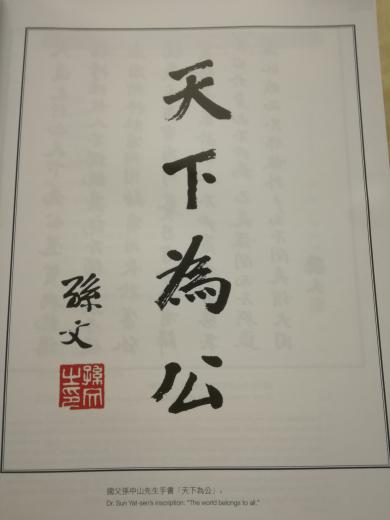 天下為公
孫文
孫文之印
國父孫中山先生手書「天下為公」。
Dr. Sun Yat-sen's inscription: "The world belongs to all."